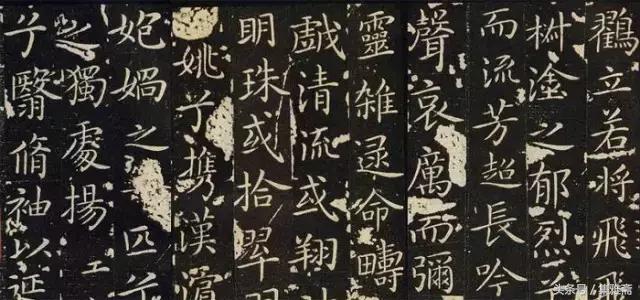 鸖立若将飛
椒塗之郁烈
而流芳超長吟
聲哀厲而彌
靈雜遝命疇
戯清流或翔
明珠或拾翠
姚兮携漢濱
匏媧之匹兮
之獨處揚
兮翳脩袖以延
头条号 / 集雅斋